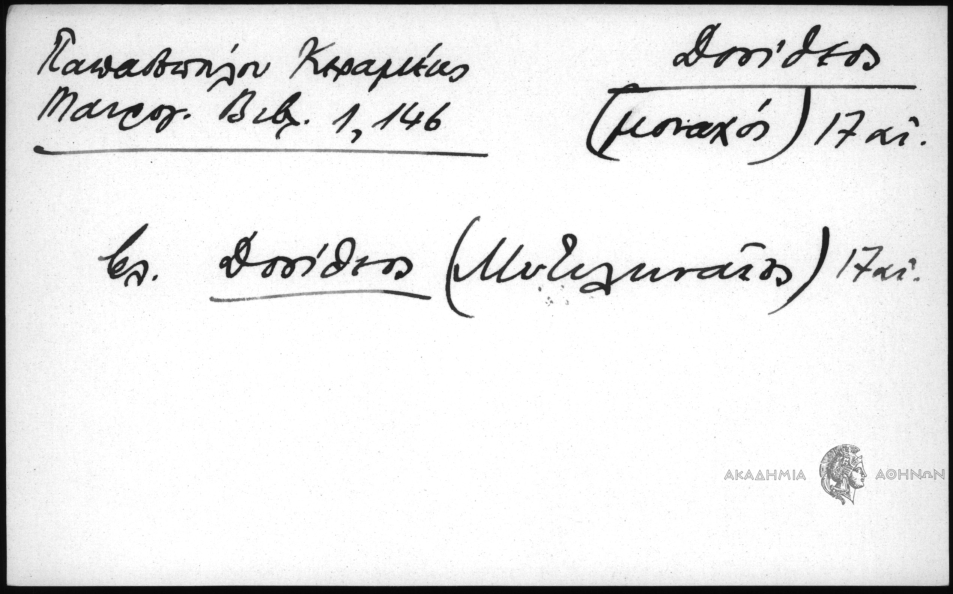 Παπαδοπούλου Κεραμέως
Μαυρογ. Βιβλ. 1, 146
Δοσίθεος
(μοναχός) 17 αἰ.
βλ. Δοσίθεος (Μυτιληναῖος) 17 αἰ.
ΑΚΑΔΗΜΙΑ ΑΘΗΝΩΝ